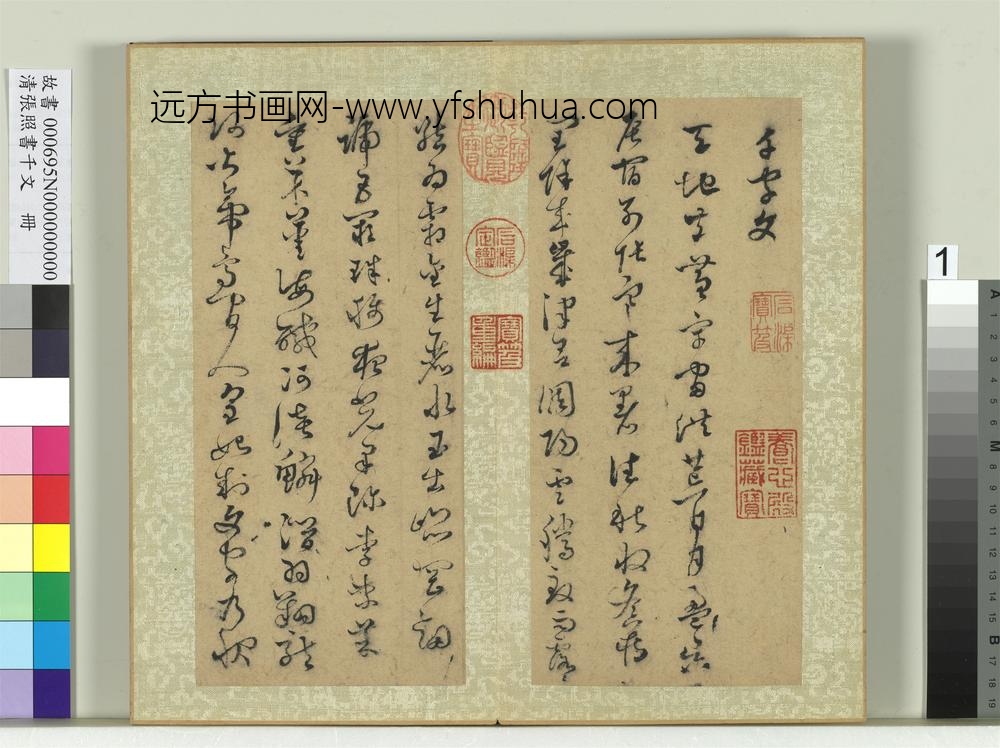 远方书画网-www.yfshuhua.com
故書 000695N000000000
清張照書千文 冊
千字文
天地玄黃宇宙洪荒日月盈昃
辰宿列張寒来暑往秋收冬藏
閏餘成歲律呂調陽雲騰致雨露
結為霜金生麗水玉出崑岡劍
號巨闕珠稱夜光果珍李柰菜
重芥薑海鹹河淡鱗潛羽翔龍
師火帝鳥官人皇始制文字乃服
石渠寶笈
養心殿鑑藏寶
乾隆御覽之寶
石渠定鑑
寶笈重編
1
A 1 2 3 4 5 6 M 8 9 10 11 12 13 14 15 B 17 18 19